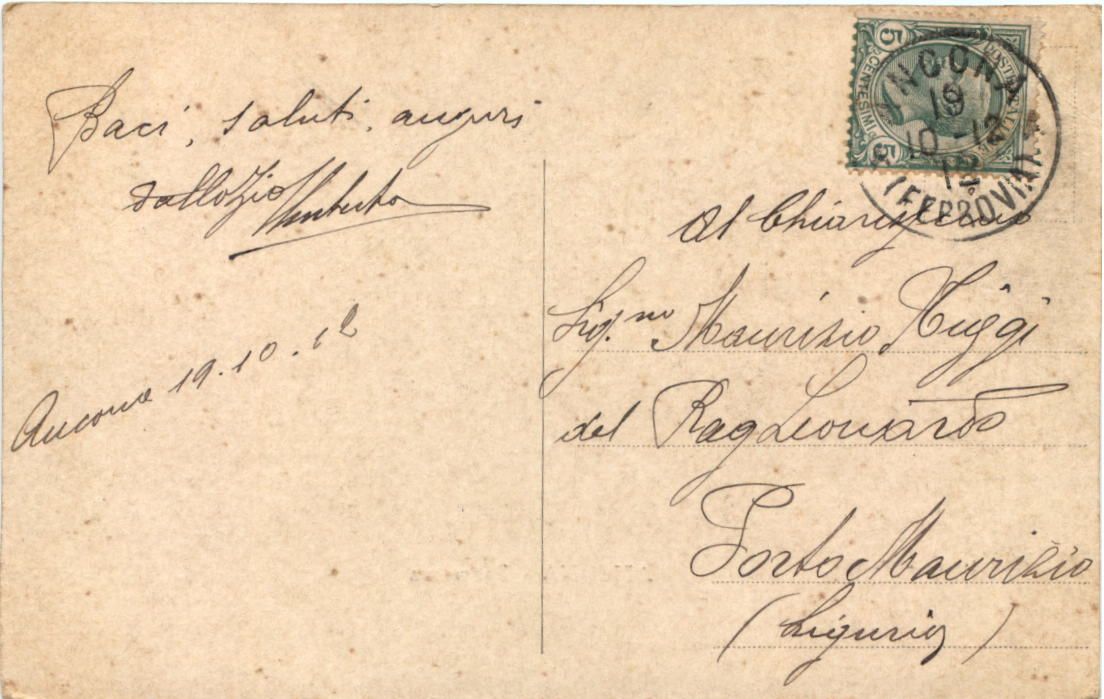 Baci, saluti, auguri
dallo zio Umberto
Ancona 19.10.12
POSTE ITALIANE
5 CENTESIMI 5
ANCONA
19
10-12
(FERROVIA)
Al Chiarissimo
Sig.no Maurizio
del Rag Leonardo
Porto Maurizio
(Liguria)